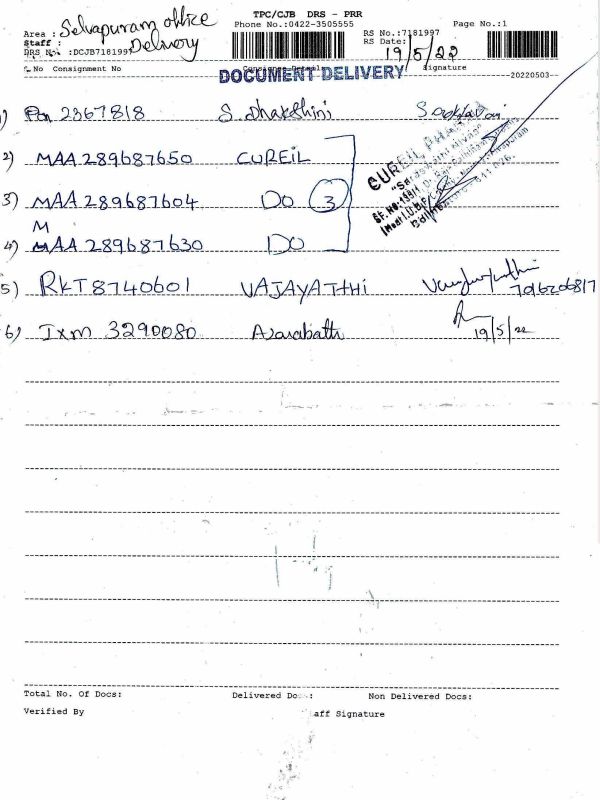 TPC/CJB DRS - PRR
Phone No.:0422-3505555
Page No.:1
Area : Selvapuram office
Staff : Delivery
DRS No :DCJB7181997
RS No.:7181997
RS Date: 19/5/22
S.No Consignment No Consignee Details Signature
DOCUMENT DELIVERY
20220503
1) Pon 2367818 S. Dhakshini
2) MAA 289687650 CUREiL
3) MAA 289687604 DO 3
M
4) MAA 289687630 DO
CUREIL PHARMA
5) RKT8740601 VAJAYATHI
6) Ixm 3290080 Azarabath 19/5/22
Total No. Of Docs: Delivered Do :
Non Delivered Docs:
Verified By
aff Signature